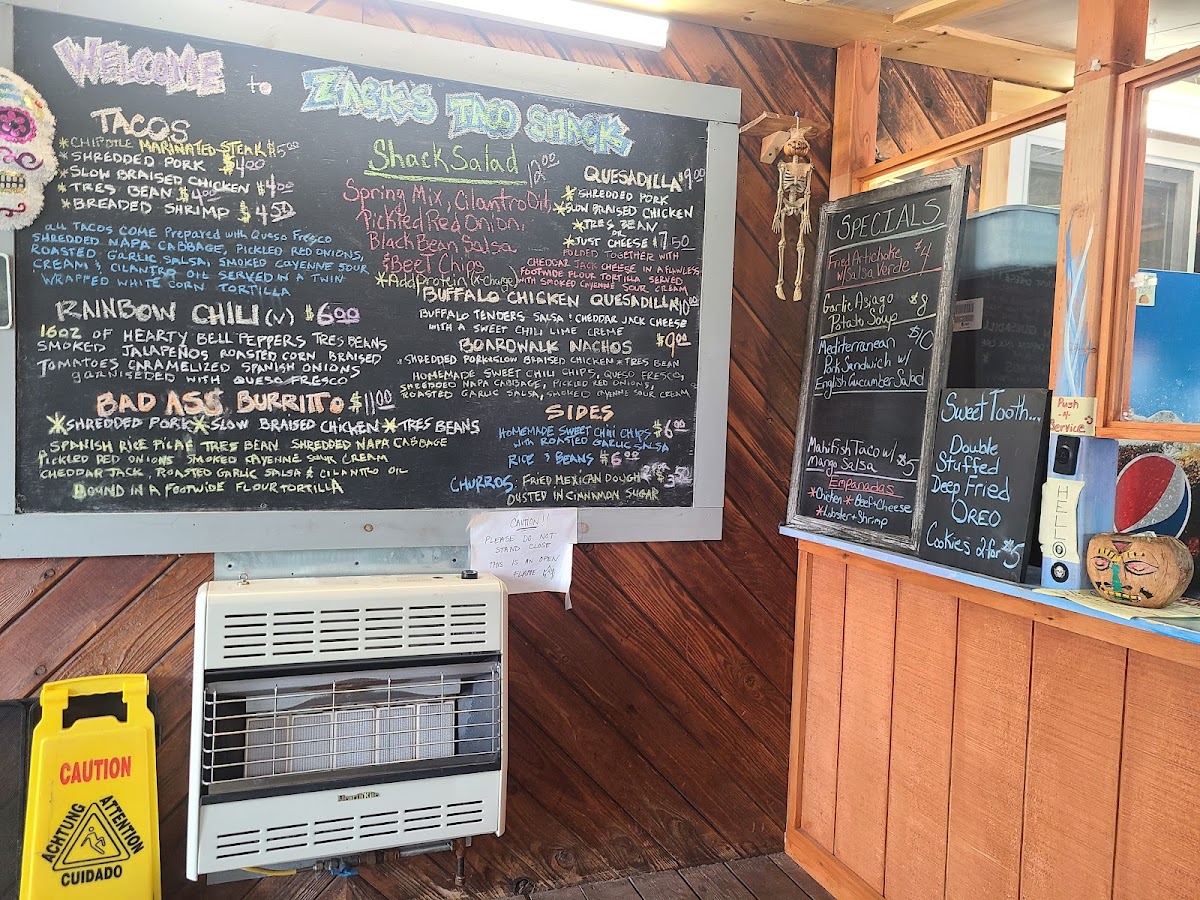 WELCOME to ZACK'S TACO SHACK
TACOS
*CHIPOTLE MARINATED STEAK $5.00
*SHREDDED PORK $4.00
*SLOW BRAISED CHICKEN $4.00
*TRES BEAN $4.00
*BREADED SHRIMP $4.50
ALL TACOS COME PREPARED WITH QUESO FRESCO
SHREDDED NAPA CABBAGE, PICKLED RED ONIONS,
ROASTED GARLIC SALSA, SMOKED CAYENNE SOUR
CREAM & CILANTRO OIL SERVED IN A TWIN
WRAPPED WHITE CORN TORTILLA
RAINBOW CHILI (V) $6.00
16OZ OF HEARTY BELL PEPPERS TRES BEANS
SMOKED JALAPEÑOS ROASTED CORN BRAISED
TOMATOES, CARAMELIZED SPANISH ONIONS
GARNISEDED WITH QUESO FRESCO
BAD ASS BURRITO $11.00
*SHREDDED PORK *SLOW BRAISED CHICKEN *TRES BEANS
SPANISH RICE PILAF TRES BEAN SHREDDED NAPA CABBAGE
PICKLED RED ONIONS SMOKED CAYENNE SOUR CREAM
CHEDDAR JACK, ROASTED GARLIC SALSA & CILANTRO OIL
BOUND IN A FOOTWIDE FLOUR TORTILLA
Shack Salad 12.00
Spring Mix, Cilantro Oil,
Pickled Red Onion,
Black Bean Salsa
& Beet Chips
*Add Protein (X-Charge)
QUESADILLA $9.00
*SHREDDED PORK
*SLOW BRAISED CHICKEN
*TRES BEAN
OR
*JUST CHEESE $7.50
FOLDED TOGETHER WITH
CHEDDAR JACK CHEESE IN A FLAWLESS
FOOTWIDE FLOUR TORTILLA SERVED
WITH SMOKED CAYENNE SOUR CREAM
BUFFALO CHICKEN QUESADILLA 10.00
BUFFALO TENDERS SALSA & CHEDDAR JACK CHEESE
WITH A SWEET CHILI LIME CREME
BOARDWALK NACHOS $9.00
*SHREDDED PORK *SLOW BRAISED CHICKEN *TRES BEAN
HOMEMADE SWEET CHILI CHIPS, QUESO FRESCO,
SHREDDED NAPA CABBAGE, PICKLED RED ONIONS,
ROASTED GARLIC SALSA, SMOKED CAYENNE SOUR CREAM
SIDES
HOMEMADE SWEET CHILI CHIPS $6.00
WITH ROASTED GARLIC SALSA
RICE & BEANS $6.00
CHURROS: FRIED MEXICAN DOUGH
DUSTED IN CINNAMON SUGAR
CAUTION!!
PLEASE DO NOT
STAND CLOSE
THIS IS AN OPEN
FLAME
SPECIALS
Fried Artichoke $4
w/Salsa Verde
Garlic Asiago $8
Potato Soup
Mediterranean $10
Pork Sandwich w/
English Cucumber Salad
Mahi Fish Taco w/ $5
Mango Salsa
Empanadas
*Chicken *Beef+Cheese
*Lobster+Shrimp
Sweet Tooth...
Double
Stuffed
Deep Fried
OREO
Cookies 2 for $5
Push
-n-
Service
HELLO
CAUTION
ACHTUNG
ATTENTION
CUIDADO